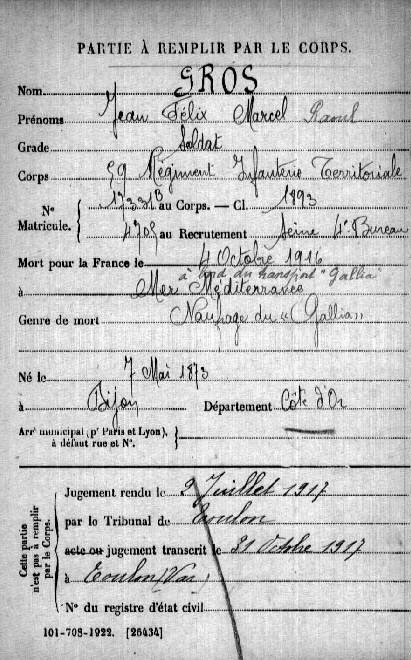 PARTIE À REMPLIR PAR LE CORPS.
Nom GROS
Prénoms Jean Félix Marcel Raoul
Grade Soldat
Corps 59 Régiment Infanterie Territoriale
N° Matricule. 17331B au Corps. — Cl. 1893
4705 au Recrutement Seine 4e Bureau
Mort pour la France le 4 Octobre 1916
à bord du transport "Gallia"
à Mer Méditerranée
Genre de mort Naufrage du «Gallia»
Né le 7 Mai 1873
à Dijon Département Côte d'Or
Arrt municipal (pr Paris et Lyon), à défaut rue et N°.
Cette partie n'est pas à remplir par le Corps.
Jugement rendu le 2 Juillet 1917
par le Tribunal de Toulon
acte ou jugement transcrit le 31 Octobre 1917
à Toulon (Var)
N° du registre d'état civil
101-708-1922. [26434]